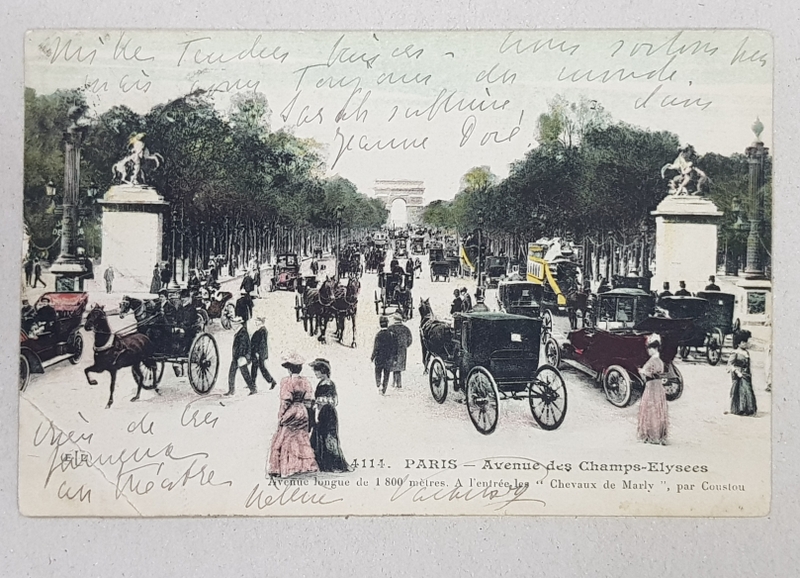 Mille Tendres baisers - nous sortons peu
mais nous Toujours du monde.
Sarah sublime dans
Jeanne Doré.
rien de très
fameux
au théâtre
Hélène
ELD
4114. PARIS — Avenue des Champs-Elysees
Avenue longue de 1 800 mètres. A l'entrée les " Chevaux de Marly ", par Coustou